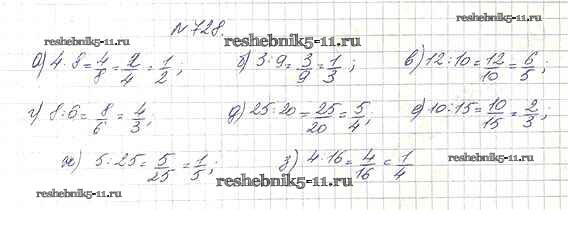 №728.
reshebnik5-11.ru
reshebnik5-11.ru
reshebnik5-11.ru
а) 4:8=4/8=2/4=1/2; б) 3:9=3/9=1/3; в) 12:10=12/10=6/5;
г) 8:6=8/6=4/3; д) 25:20=25/20=5/4; е) 10:15=10/15=2/3;
ж) 5:25=5/25=1/5; з) 4:16=4/16=1/4
reshebnik5-11.ru
reshebnik5-11.ru
reshebnik5-11.ru